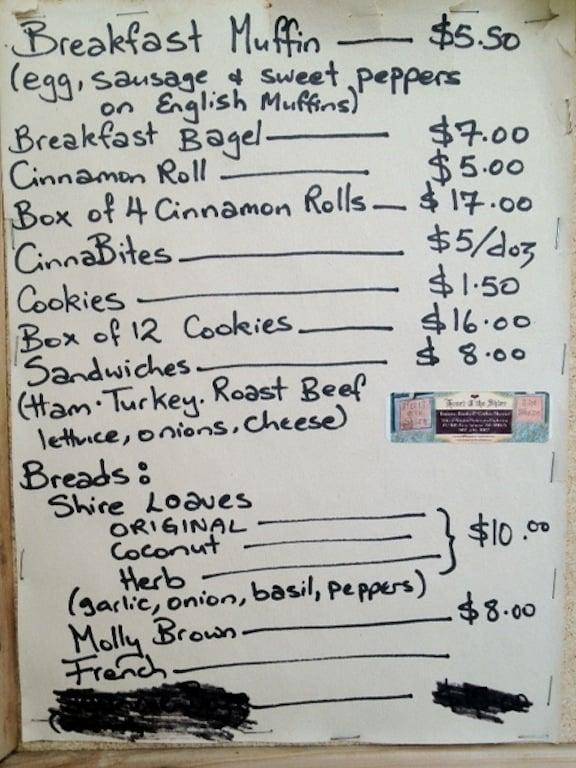 Breakfast Muffin $5.50
(egg, sausage & sweet peppers
on English Muffins)
Breakfast Bagel $7.00
Cinnamon Roll $5.00
Box of 4 Cinnamon Rolls $17.00
CinnaBites $5/doz
Cookies $1.50
Box of 12 Cookies $16.00
Sandwiches $8.00
(Ham. Turkey. Roast Beef
lettuce, onions, cheese)
Breads:
Shire Loaves
ORIGINAL
Coconut $10.00
Herb
(garlic, onion, basil, peppers)
Molly Brown $8.00
French